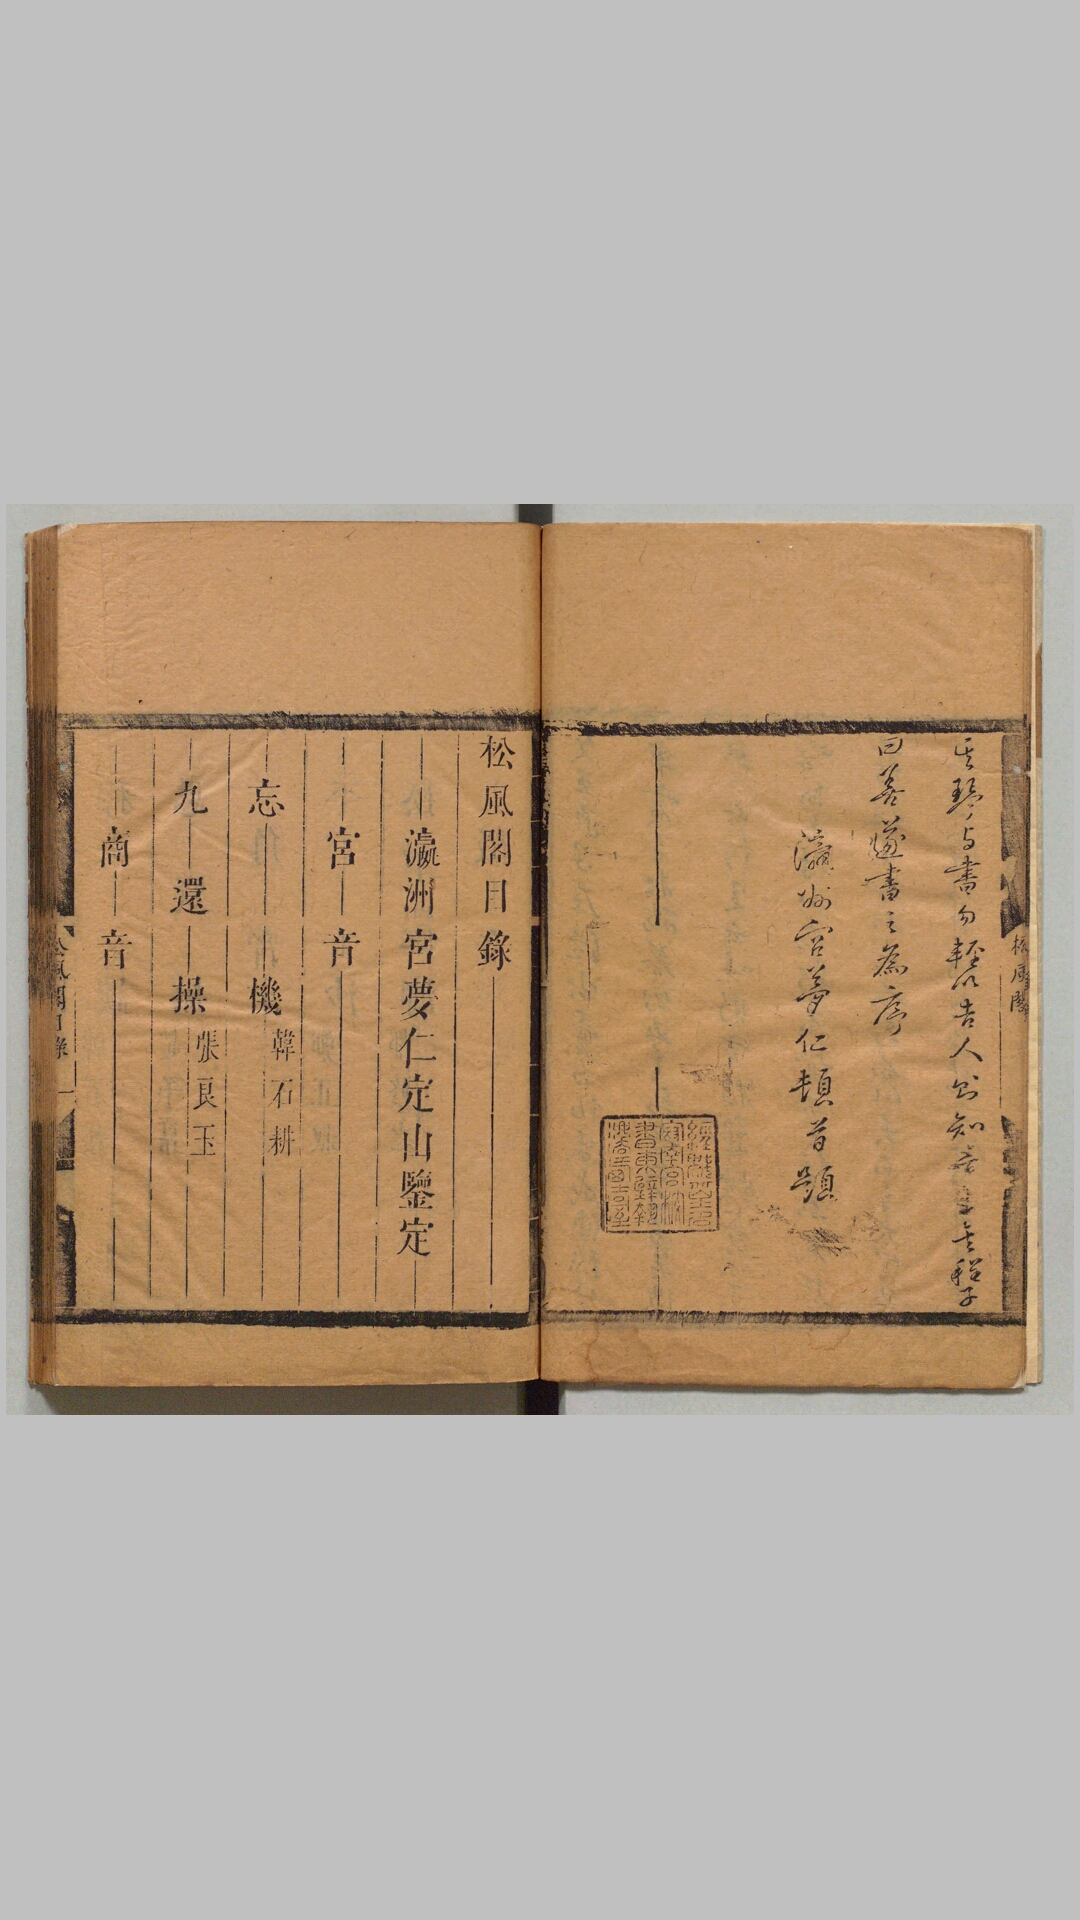 其琴与書勿輕以告人則知
曰善遂書之為序
瀛洲宮夢仁頓首題
松風閣
松風閣目錄
瀛洲宮夢仁定山鑒定
宮音
忘機韓石耕
九還操張良玉
商音
松風閣目錄 一